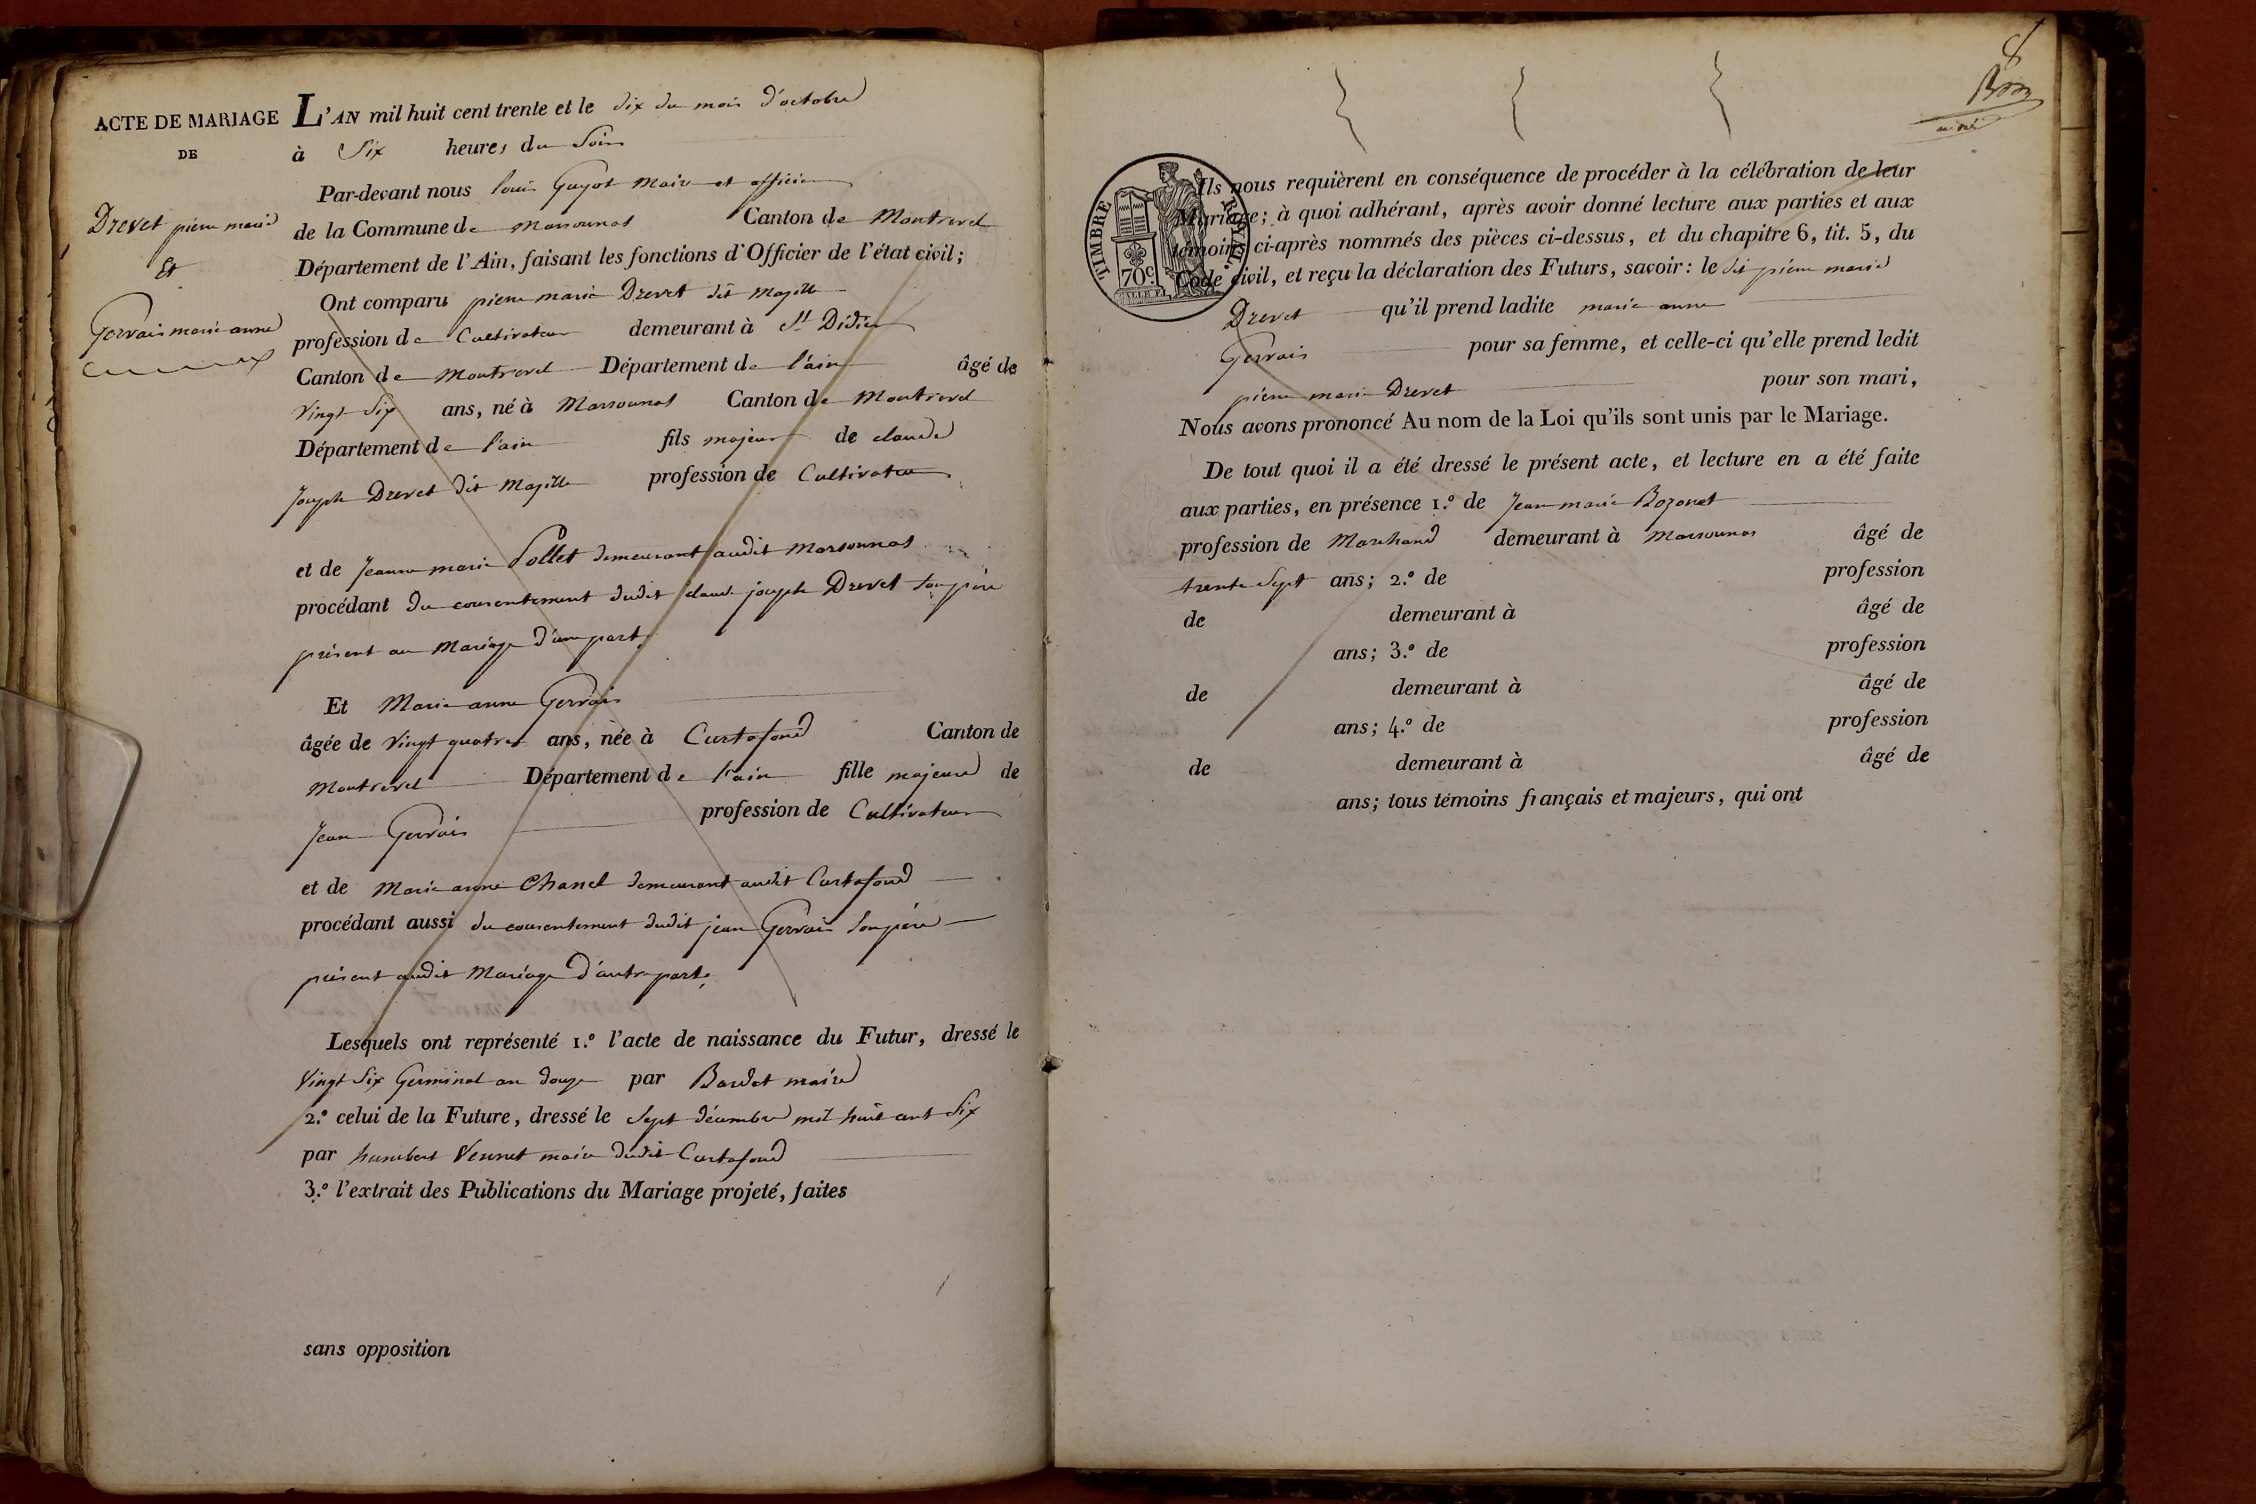 ACTE DE MARIAGE
DE
Drevet pierre marie
Et
Gervais marie anne
L'AN mil huit cent trente et le dix du mois d'octobre
à Six heures du Soir
Par-devant nous louis Guyot Maire et officier
de la Commune de marsonnas Canton de Montrevel
Département de l'Ain, faisant les fonctions d'Officier de l'état civil;
Ont comparu pierre marie Drevet dit
profession de Cultivateur demeurant à St Didier
Canton de montrevel Département de l'ain âgé de
vingt Six ans, né à Marsonnas Canton de Montrevel
Département de l'ain fils majeur de claude
Joseph Drevet dit profession de Cultivateur
et de Jeanne marie Pollet demeurant audit marsonnas
procédant du consentement dudit claude joseph Drevet Son père
présent au Mariage d'une part,
Et Marie anne Gervais
âgée de vingt quatre ans, née à Curtafond Canton de
Montrevel Département de l'ain fille majeure de
Jean Gervais profession de Cultivateur
et de Marie anne Chanel demeurant audit Curtafond
procédant aussi du consentement dudit jean Gervais Son père
présent audit Mariage d'autre part,
Lesquels ont représenté 1.º l'acte de naissance du Futur, dressé le
Vingt Six Germinal an douze par Bardet maire
2.º celui de la Future, dressé le Sept décembre mil huit cent Six
par humbert maire dudit Curtafond
3.º l'extrait des Publications du Mariage projeté, faites
sans opposition
8
TIMBRE ROYAL
70 c.
Ils nous requièrent en conséquence de procéder à la célébration de leur
Mariage; à quoi adhérant, après avoir donné lecture aux parties et aux
témoins ci-après nommés des pièces ci-dessus, et du chapitre 6, tit. 5, du
Code civil, et reçu la déclaration des Futurs, savoir: le dit pierre marie
Drevet qu'il prend ladite marie anne
Gervais pour sa femme, et celle-ci qu'elle prend ledit
pierre marie Drevet pour son mari,
Nous avons prononcé Au nom de la Loi qu'ils sont unis par le Mariage.
De tout quoi il a été dressé le présent acte, et lecture en a été faite
aux parties, en présence 1.º de Jean marie Bozonet
profession de Marchand demeurant à marsonnas âgé de
trente Sept ans; 2.º de profession
de demeurant à âgé de
ans; 3.º de profession
de demeurant à âgé de
ans; 4.º de profession
de demeurant à âgé de
ans; tous témoins français et majeurs, qui ont